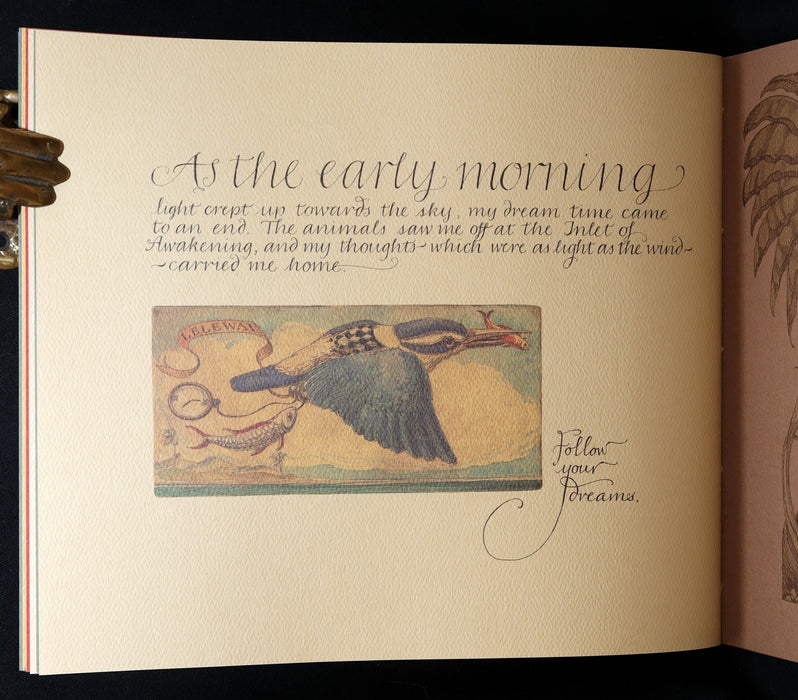 As the early morning
light crept up towards the sky, my dream time came
to an end. The animals saw me off at the Inlet of
Awakening, and my thoughts ~ which were as light as the wind ~
~ carried me home.
LELEWAL
Follow
your
dreams.